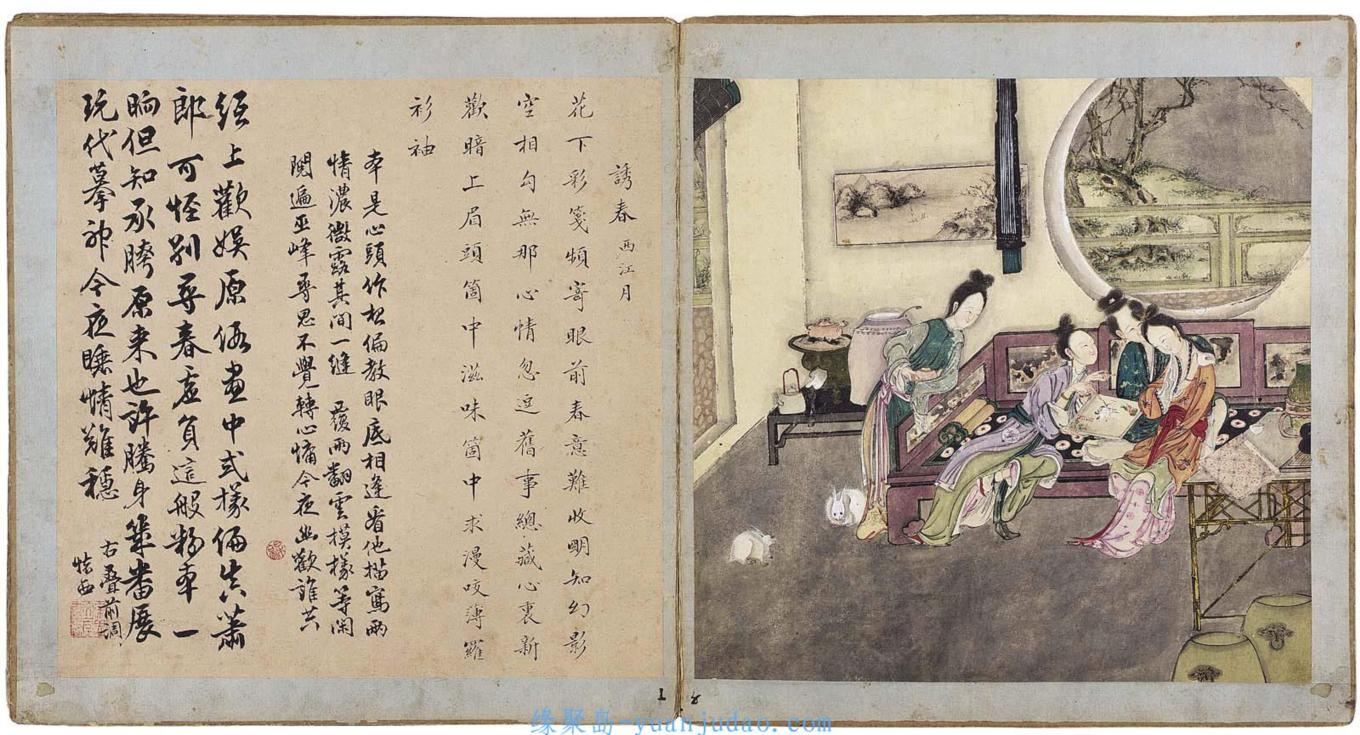 誘春 西江月
花下彩箋頻寄眼前春意難收明知幻影
空相勾無那心情忽逗舊事總藏心裏新
歡暗上眉頭箇中滋味箇中求漫咬薄羅
衫袖
本是心頭作起偏教眼底相逢看他描寫兩
情濃微露其間一縫 覆雨翻雲模樣等閑
閱遍巫峰尋思不覺轉心慵今夜幽歡誰共
紙上歡娛原假畫中式樣偏真蕭
郎可怪別尋春虛負這般粉本 一
晌但知承勝原來也許騰身幾番展
玩代摹神今夜睡情難穩
右疊前調
1
2
缘聚岛-yuanjudao.com